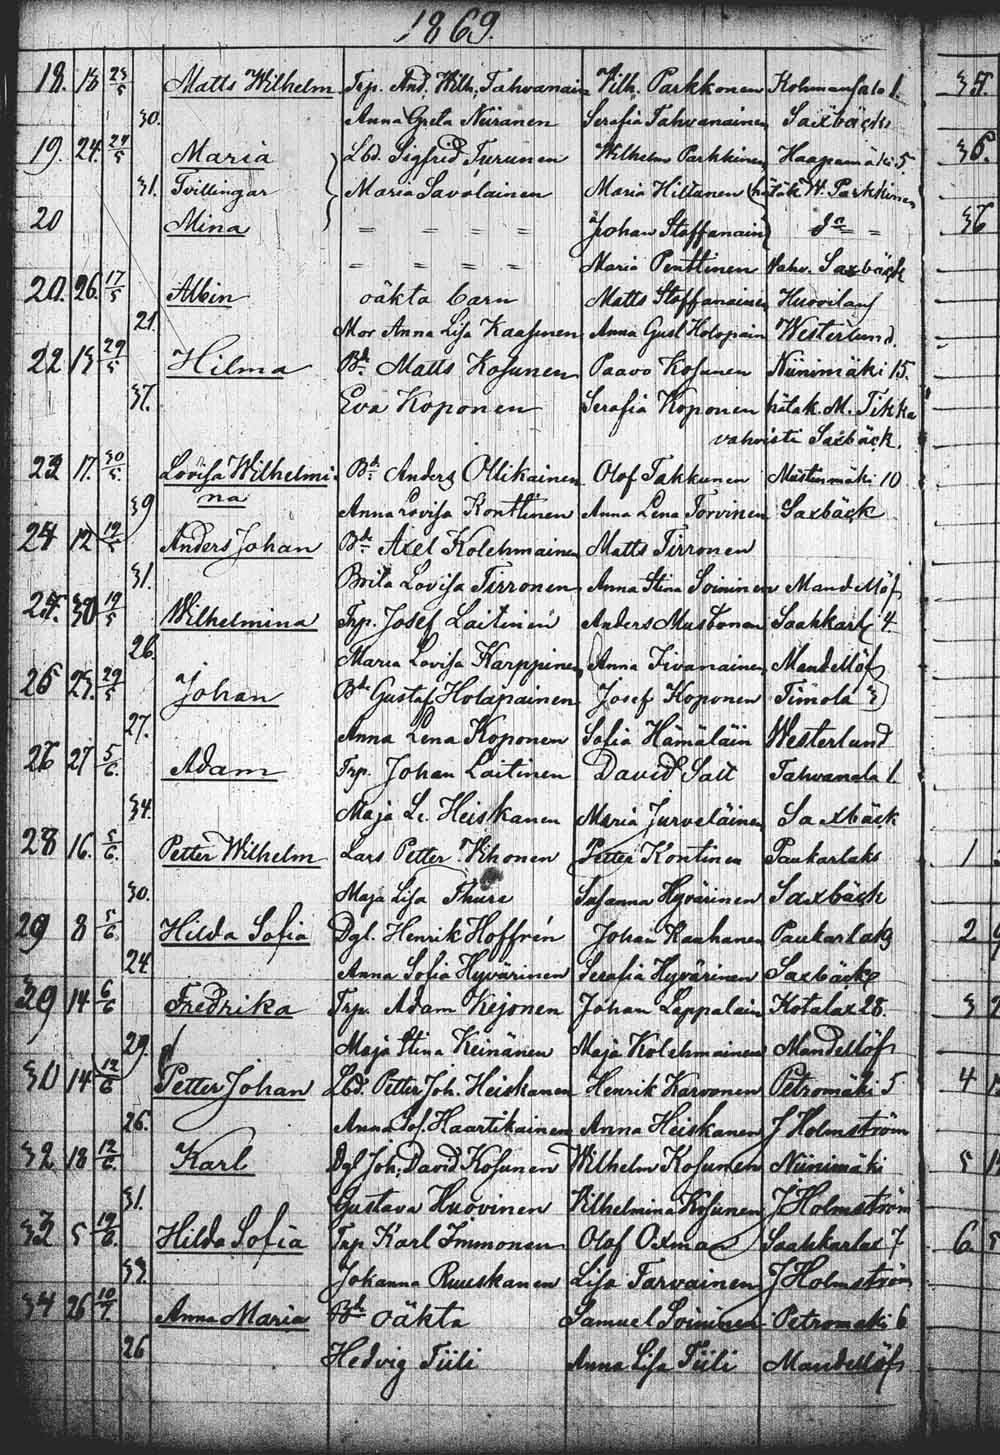 1869.
18. 13 23/5 Matts Wilhelm Trp. And. Wilh. Tahvanain Vilh. Parkkonen Kohmansalo 1. 35.
30. Anna Greta Niiranen Serafia Tahvanainen Saxbäck
19. 24. 24/5 Maria Lbd. Sigfrid Turunen Wilhelm Parkkinen Haapamäki 5. 36.
31. Tvillingar Maria Savolainen Maria Hiltanen W. Parkkinen
20 Mina = = = = Johan Staffanain = = 36
= = = = Maria Penttinen Vahv. Saxbäck
20. 26. 17/5 Albin oäkta barn Matts Staffanainen
21. Mor Anna Lisa Kaasinen Anna Gust Holopain Westerlund.
22 13 29/5 Hilma Bd. Matts Kosunen Paavo Kosunen Niinimäki 15.
37. Eva Koponen Serafia Koponen hätäk. M. Tikka
vahvisti Saxbäck.
23 17. 30/5 Lovisa Wilhelmi Bd. Anders Ollikainen Olof Takkunen Mustinmäki 10
39 na Anna Lovisa Konttinen Anna Lena Torvinen Saxbäck
24 12 19/5 Anders Johan Bd. Axel Kolehmainen Matts Tirronen
31. Brita Lovisa Tirronen Anna Stina Soininen Mandellöf
25. 30 19/5 Wilhelmina Trp. Josef Laitinen Anders Mustonen Saahkarl 4.
26. Maria Lovisa Karppinen Anna Iivanainen Mandellöf
26 23. 29/5 Johan Bd. Gustaf Holapainen Josef Koponen Timola 3
27. Anna Lena Koponen Sofia Hämäläin Westerlund
26 27 5/6. Adam Trp. Johan Laitinen David Lait Tahvanala 1.
34. Maja L. Heiskanen Maria Jurveläinen Saxbäck
28 16. 5/6. Petter Wilhelm Lars Petter Vihonen Petter Kontinen Paukarlaks 1
30. Maja Lisa Thure Susanna Hyvärinen Saxbäck
29 8 5/6 Hilda Sofia Dgl. Henrik Hoffrén Johan Kauhanen Paukarlak 9 2
24. Anna Sofia Hyvärinen Serafia Hyvärinen Saxbäck
29 14 6/6 Fredrika Trp. Adam Kejonen Johan Lappalain Kotalax 28. 3
29. Maja Stina Keinänen Maja Kolehmainen Mandellöf
30 14 12/6 Petter Johan Lbd. Petter Joh. Heiskanen Henrik Karvonen Petromäki 5 4
26. Anna Sof. Haartikainen Anna Heiskanen J Holmström
32 18 12/6. Karl Dgl Joh. David Kosunen Wilhelm Kosunen Niinimäki 5
31. Gustava Huovinen Vilhelmina Kosunen J Holmström
33 5 19/6. Hilda Sofia Trp Karl Immonen Olof Oxman Saahkarlax 7. 6
33. Johanna Ruuskanen Lisa Tarvainen J Holmström
34 26 10/7. Anna Maria Bd oäkta Samuel Soininen Petromäki 6
26 Hedvig Tiili Anna Lisa Tiili Mandellöf